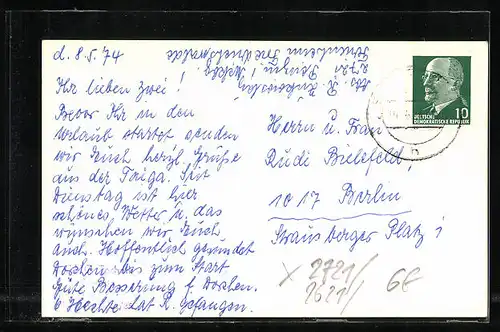 d. 8.5.74
Ihr lieben zwei!
Bevor Ihr in den
Urlaub startet senden
wir Euch herzl. Grüße
aus der Taiga. Seit
Dienstag ist hier
schönes Wetter u. das
wünschen wir Euch
auch. Hoffentlich gesundet
bis zum Start
Gute Besserung f.
6 Hechte hat R. gefangen.
Abs. R.
2721
Ferienheim Friedrichswalde
DEUTSCHE
DEMOKRATISCHE REPUBLIK
10
h
Herrn u. Frau
Rudi Bielefeld,
1017 Berlin
Strausberger Platz 1
x 2721/
2621/
GE